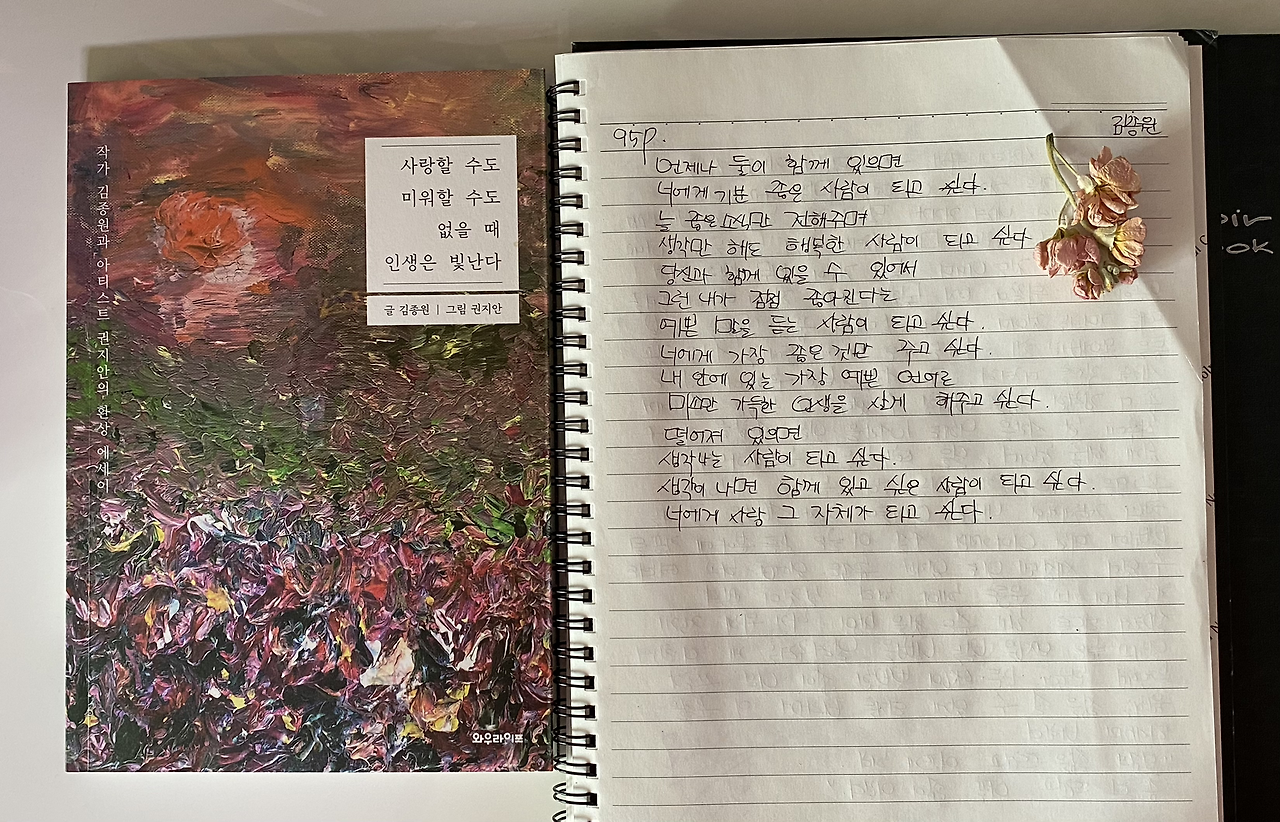 작가 김종원과 아티스트 권지안의 환상 에세이
사랑할 수도
미워할 수도
없을 때
인생은 빛난다
글 김종원 | 그림 권지안
와우라이프
김종원
95p.
언제나 둘이 함께 있으면
너에게 기분 좋은 사람이 되고 싶다.
늘 좋은 소식만 전해주며
생각만 해도 행복한 사람이 되고 싶다
당신과 함께 있을 수 있어서
그런 내가 점점 좋아진다는
예쁜 말을 듣는 사람이 되고 싶다.
너에게 가장 좋은 것만 주고 싶다.
내 안에 있는 가장 예쁜 언어로
미소만 가득한 인생을 살게 해주고 싶다.
떨어져 있으면
생각나는 사람이 되고 싶다.
생각이 나면 함께 있고 싶은 사람이 되고 싶다.
너에게 사랑 그 자체가 되고 싶다.